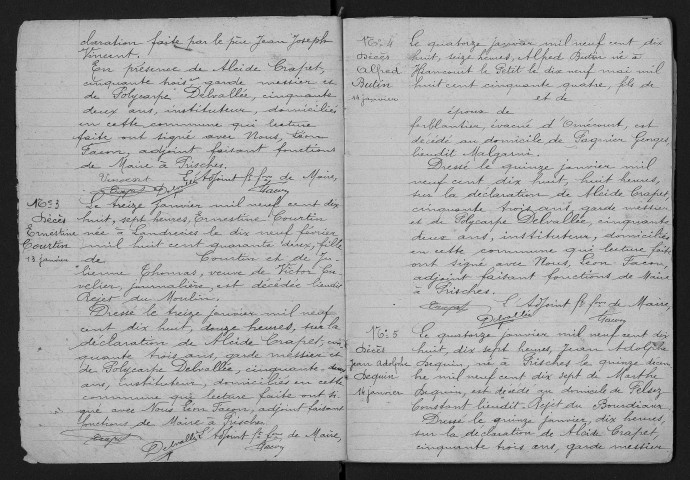 claration faite par le père Jean Joseph
Vincent.
En présence de Alcide Crapet,
cinquante trois ans garde messier et
de Polycarpe Delvallée, cinquante
deux ans, instituteur, domiciliés
en cette commune qui lecture
faite ont signé avec Nous, Léon
Facon, adjoint faisant fonctions
de Maire à Prisches.
Vincent L'Adjoint ff. fons de Maire,
Crapet Delvallée Facon
No 3
Décès
Ernestine
Courtin
13 janvier
Le treize janvier mil neuf cent dix
huit, sept heures, Ernestine Courtin
née à Landrecies le dix neuf février
mil huit cent quarante deux, fille
de Courtin et de Ju-
lienne Thomas, veuve de Victor Cu-
velier, journalière, est décédée lieudit
Rejet du Moulin.
Dressé le treize janvier mil neuf
cent dix huit, douze heures, sur la
déclaration de Alcide Crapet, cin
quante trois ans, garde messier et
de Polycarpe Delvallée, cinquante deux
ans, instituteur, domiciliés en cette
commune qui lecture faite ont si
gné avec Nous Léon Facon, adjoint faisant
fonctions de Maire à Prisches
L'Adjoint ff. fons de Maire,
Crapet Delvallée Facon
No 4
Décès
Alfred
Butin
14 janvier
Le quatorze janvier mil neuf cent dix
huit, seize heures, Alfred Butin né à
Hiancourt le Petit le dix neuf mai mil
huit cent cinquante quatre, fils de
et de
époux de
ferblantier, évacué d'Omécourt, est
décédé au domicile de Pagnier Georges,
lieudit Malgarni.
Dressé le quinze janvier mil
neuf cent dix huit, huit heures,
sur la déclaration de Alcide Crapet,
cinquante trois ans, garde messier
et de Polycarpe Delvallée, cinquante
deux ans, instituteur, domiciliés
en cette commune qui lecture faite
ont signé avec Nous, Léon Facon,
adjoint faisant fonctions de Maire
à Prisches.
L'Adjoint ff. fons de Maire,
Crapet Delvallée Facon
No 5
Décès
Jean Adolphe
Sequin
14 janvier
Le quatorze janvier mil neuf cent dix
huit, dix sept heures, Jean Adolphe
Sequin, né à Prisches le quinze
mil neuf cent dix sept de Marthe
Sequin, est décédé au domicile de
Constant lieudit Rejet du Bourdiaux
Dressé le quinze janvier, dix heures,
sur la déclaration de Alcide Crapet,
cinquante trois ans, garde messier